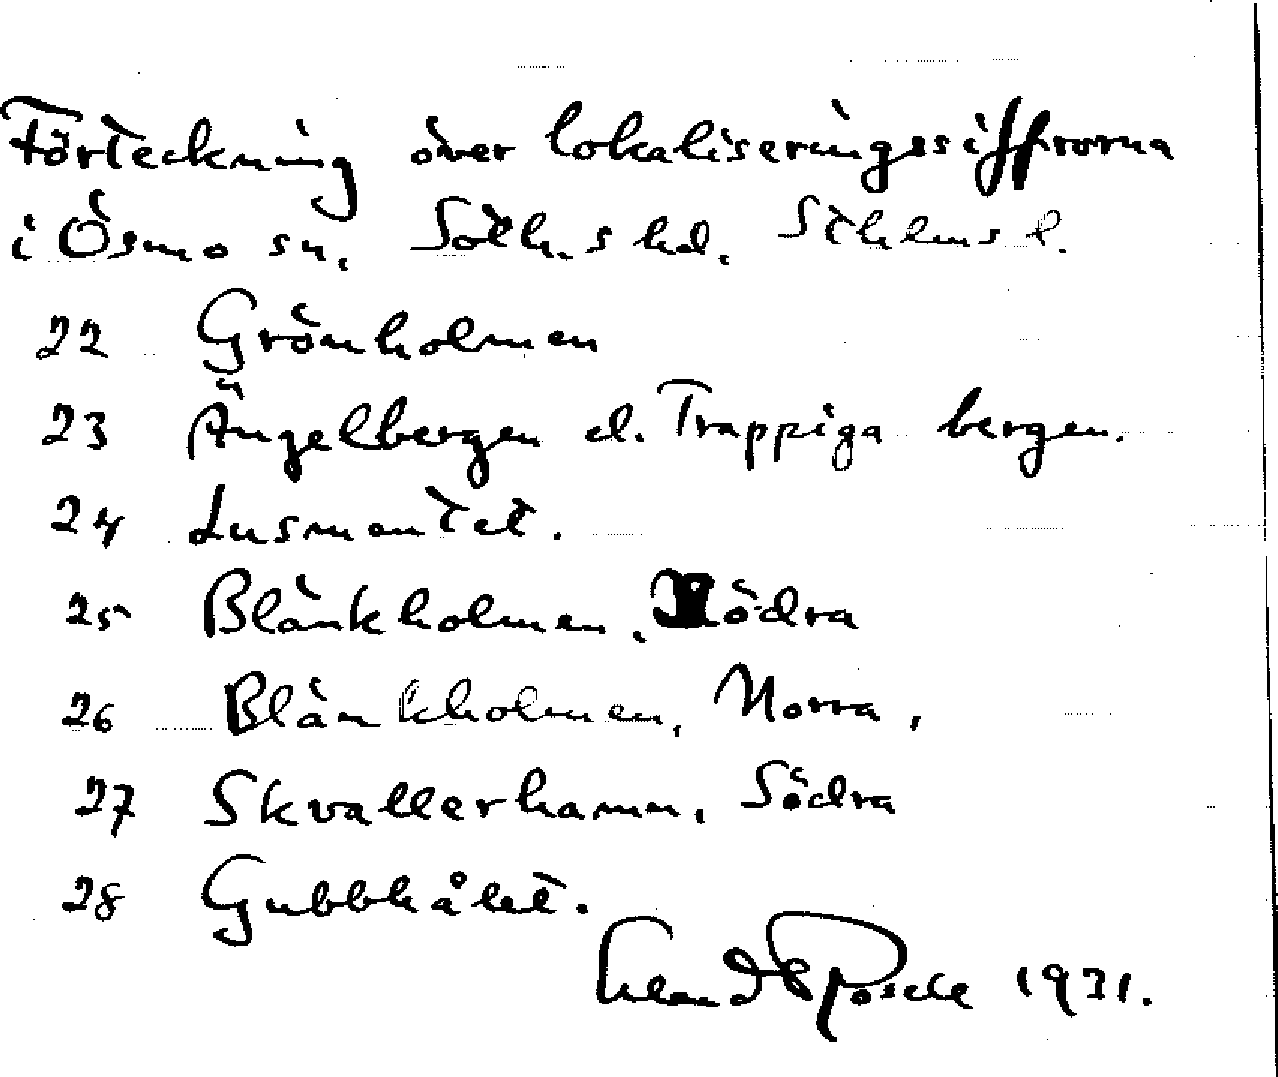 Förteckning över lokaliseringssiffrorna
i Ösmo sn. Soth.s hd. Sthlms l.
22 Grönholmen
23 Ängelbergen el. Trappiga bergen.
24 Lusmentet.
25 Blänkholmen, Södra
26 Blänkholmen, Norra,
27 Skvallerhamn, Södra
28 Gubbhålet.
1931.